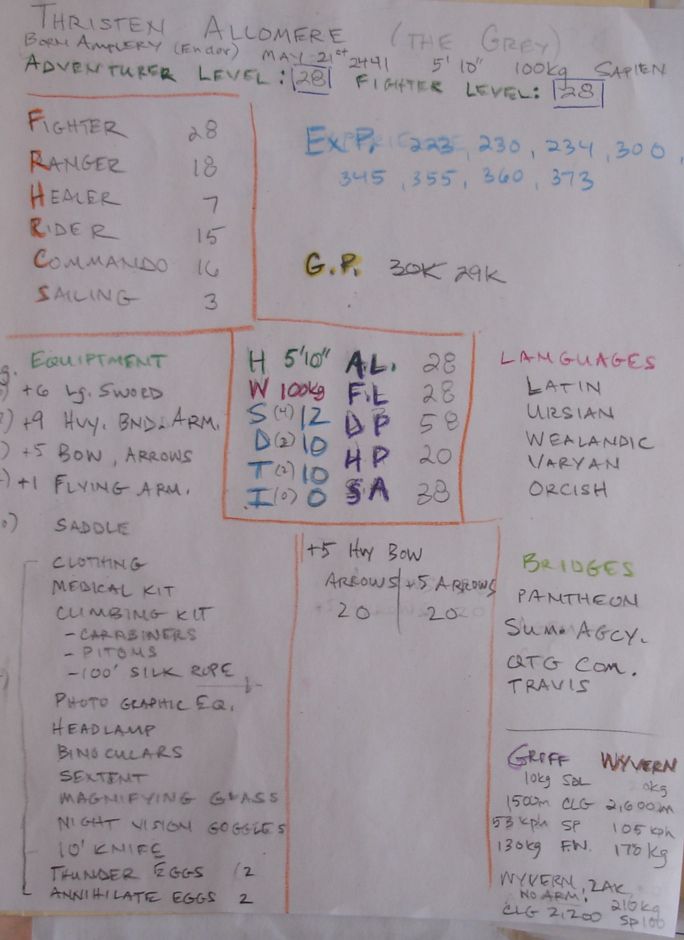 THRISTEN ALLOMERE (THE GREY)
BORN AMPLERY (ENDOR) MAY 21st 2441 5'10" 100kg SAPIEN
ADVENTURER LEVEL: 28 FIGHTER LEVEL: 28
FIGHTER 28
RANGER 18
HEALER 7
RIDER 15
COMMANDO 16
SAILING 3
EXP. 223, 230, 234, 300,
345, 355, 360, 373
G.P. 30K 29K
EQUIPTMENT
+6 Lg. SWORD
+9 HVY. BND. ARM.
+5 BOW, ARROWS
+1 FLYING ARM.
SADDLE
CLOTHING
MEDICAL KIT
CLIMBING KIT
- CARABINERS
- PITOMS
- 100' SILK ROPE
PHOTO GRAPHIC EQ.
HEADLAMP
BINOCULARS
SEXTENT
MAGNIFYING GLASS
NIGHT VISION GOGGLES
10' KNIFE
THUNDER EGGS 12
ANNIHILATE EGGS 2
H 5'10" AL. 28
W 100kg F.L 28
S (4) 12 DP 58
D (2) 10 HP 20
T (2) 10 SA 38
I (0) 0
+5 Hvy Bow
ARROWS +5 ARROWS
20 20
LANGUAGES
LATIN
URSIAN
WEALANDIC
VARYAN
ORCISH
BRIDGES
PANTHEON
Sum. AGCY.
QTG Com.
TRAVIS
GRIFF WYVERN
10kg SDL 0kg
1500m CLG 2,600m
53 kph SP 105 kph
130kg F.W. 170 kg
WYVERN, 2AK,
NO ARM. 210kg
CLG 2,200 SP 100